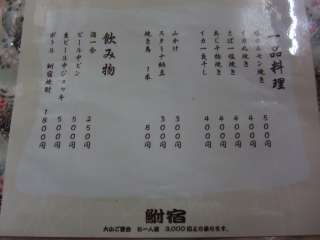 一品料理
モン焼き 500円
焼き 400円
さば一塩焼き 400円
あじ干物焼き 400円
イカ一夜干し 400円
山かけ 300円
スタミナ納豆 300円
焼き鳥 1本 80円
飲み物
酒一合 250円
ビール中ビン 500円
生ビール中ジョッキ 500円
ボトル 附宿焼酎 1800円
附宿
大小ご宴会 お一人様 3,000円より承ります。